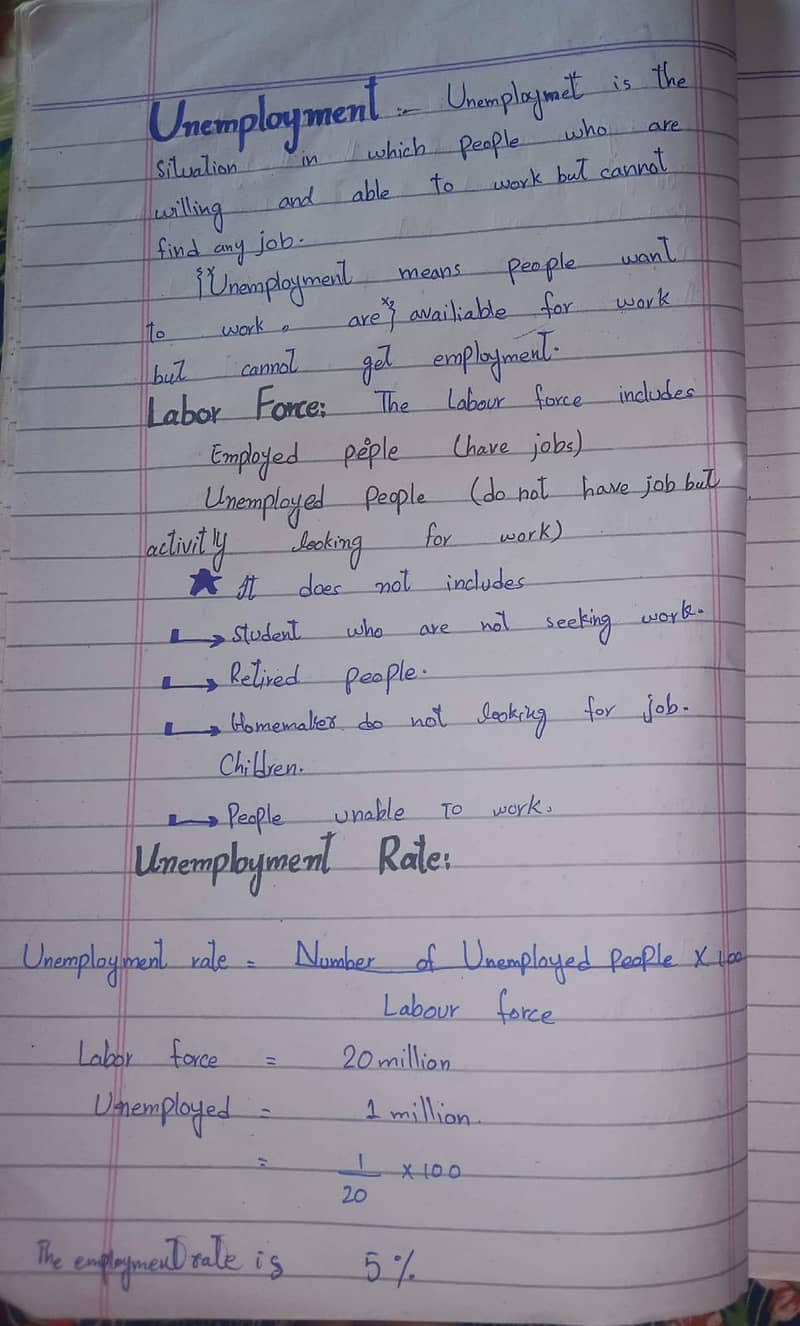 Unemployment :- Unemploymet is the
situation in which people who are
willing and able to work but cannot
find any job.
Unemployment means people want
to work, are} availiable for work
but cannot get employment.
Labor Force: The Labour force includes
Employed peple (have jobs)
Unemployed People (do not have job but
activitly looking for work)
★ It does not includes
→ Student who are not seeking work.
→ Retired people.
→ Homemaker do not looking for job.
Children.
→ People unable To work.
Unemployment Rate:
Unemployment rate = Number of Unemployed People X 100
Labour force
Labor force = 20 million
Unemployed = 1 million.
= 1 × 100
20
The employment rate is 5%